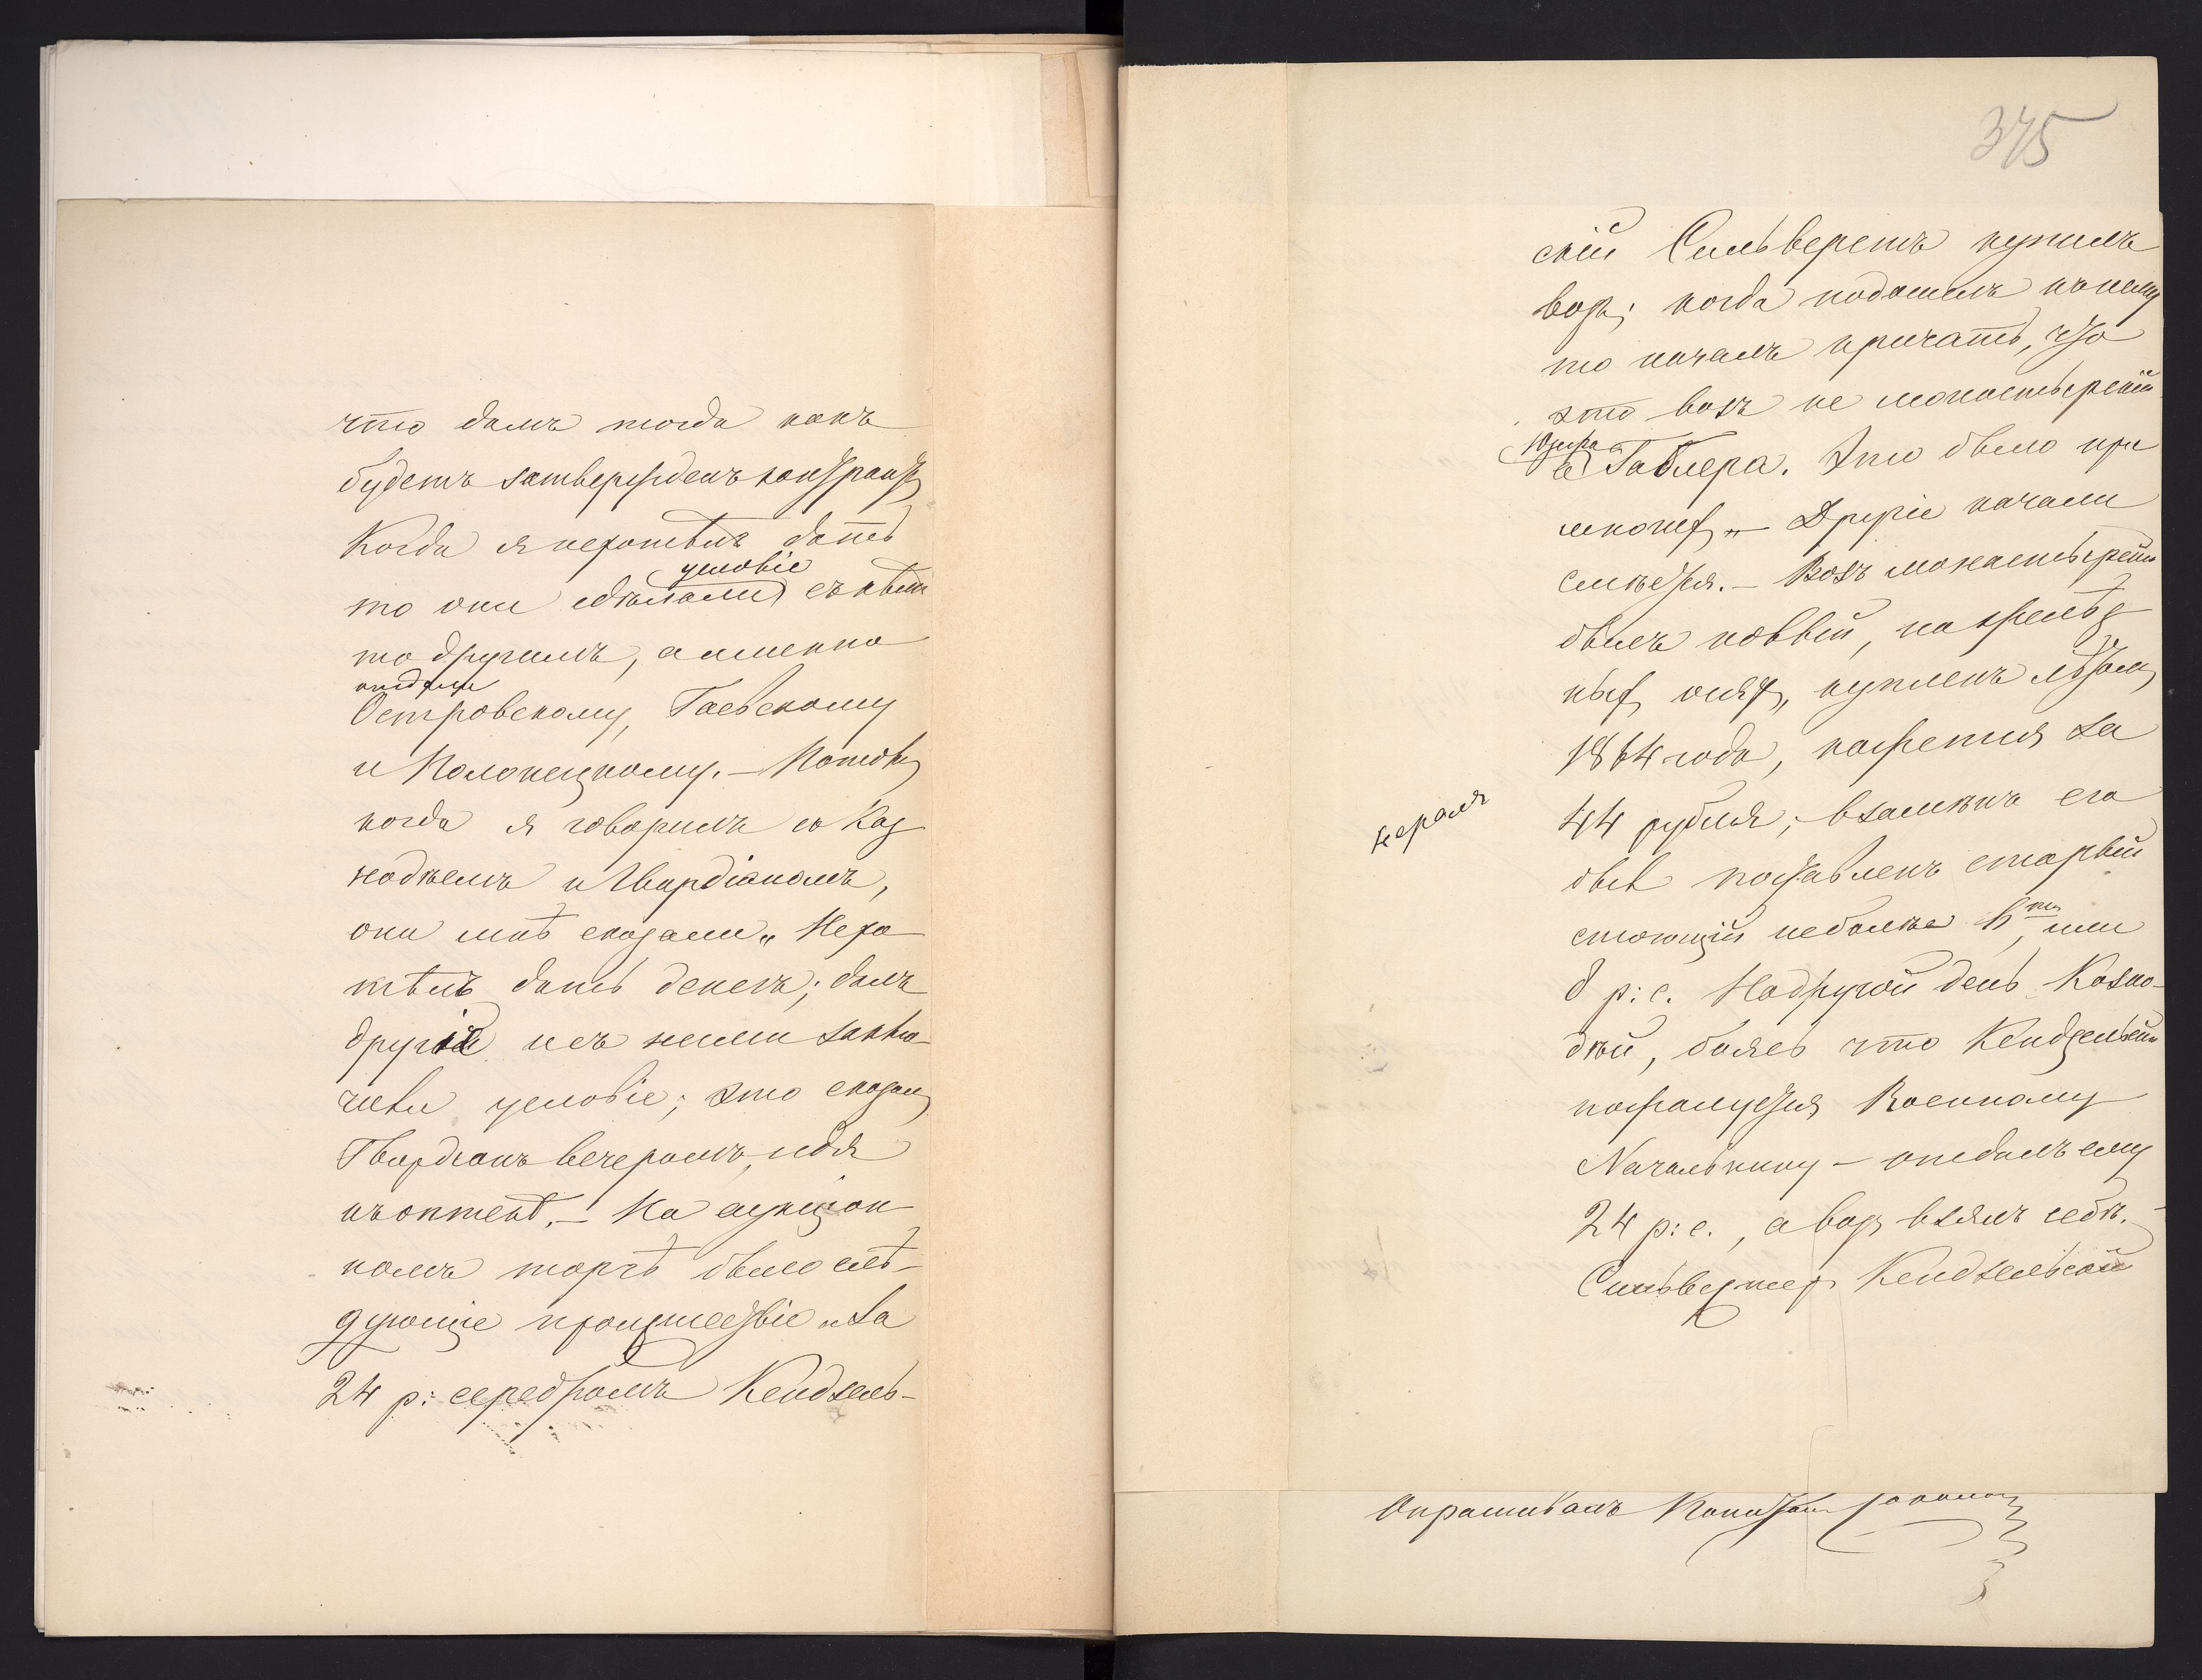 что дамъ тогда какъ
будетъ затвержденъ контрактъ
Когда я нехотѣлъ дать
условіе
то они сдѣлали съ кѣмъ
то другимъ, а именно
отдали
Островскому, Гаевскому
и Полонецкому. — Потомъ
когда я говорилъ съ Каз
нодѣемъ и Гвардіаномъ,
они мнѣ сказали „Нехо
тѣлъ дать денегъ; далъ
другіе и съ ними заклю-
чили условіе; это сказалъ
Гвардіанъ вечеромъ, идя
къ оптект. — На аукціон
номъ торгѣ было слѣ-
дующіе происшествіе „За
24 р: серебромъ Кендзель-
375
скій Сильверетъ купилъ
возъ; когда подошелъ къ нему
то началъ кричать, что
это возъ не монастырскій
Юзефа
а Габлера. Это было при
многихъ — Другіе начали
смѣятся. — Возъ монастырскій
былъ новый, на желѣз
ныхъ осяхъ, купленъ лѣтомъ
1864 года, кажется за
44 рубля; взамѣнъ его
былъ поставленъ старый
стоющій неболѣе 6ти, или
8 р: с. На другой день Казно-
дѣй, боясь что Кендзельскій
пожалуется Военному
Начальнику — отдалъ ему
24 р: с., а возъ взялъ себѣ. —
Сильверстеръ Кендзельскій
Опрашивалъ Капитанъ